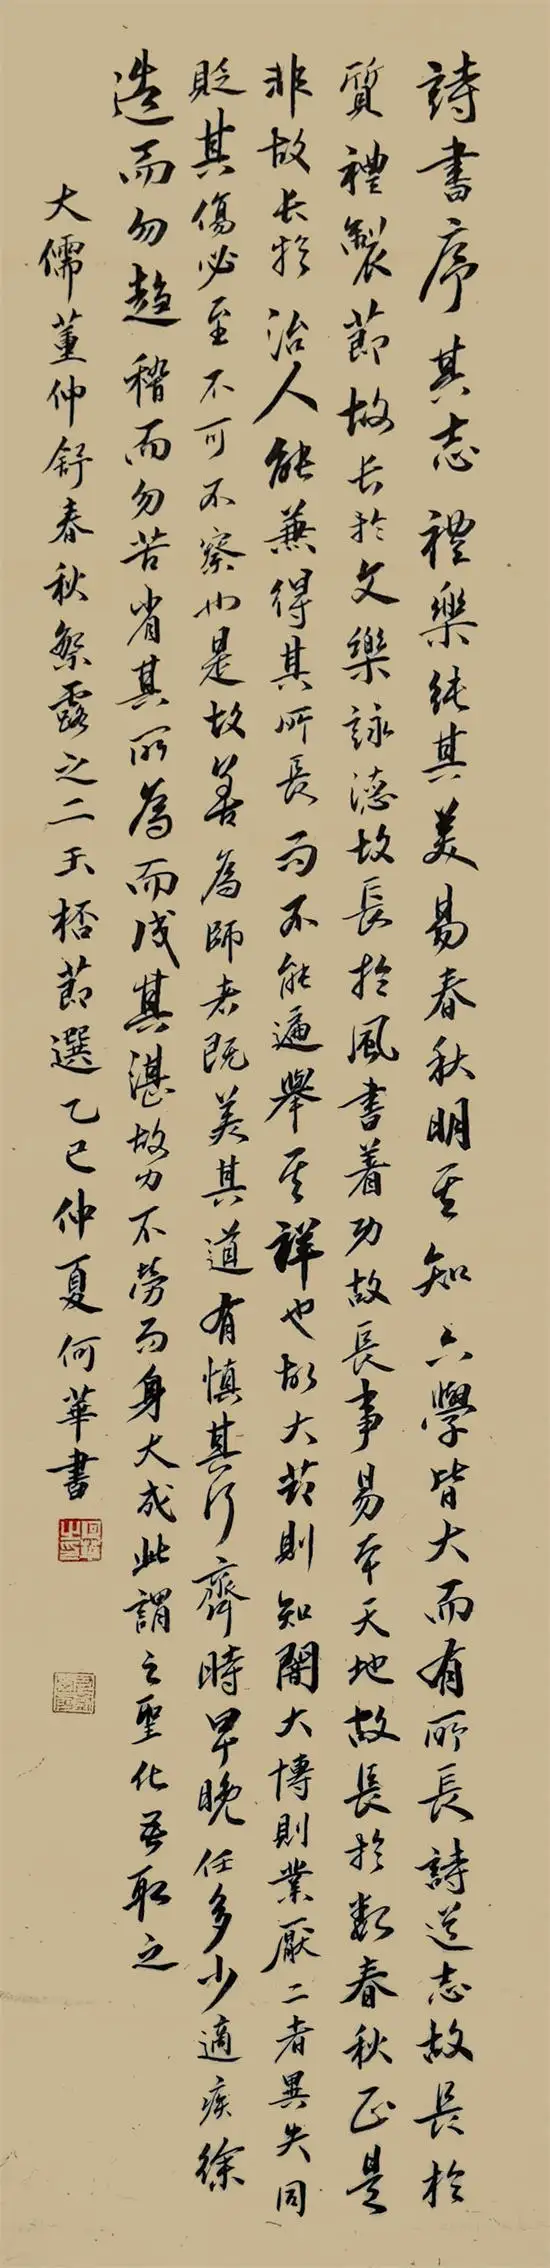 詩書序其志禮樂純其美易春秋明其知六學皆大而有所長詩道志故長於
質禮製節故長於文樂詠德故長於風書着功故長事易本天地故長於數春秋正是
非故長於治人能兼得其所長而不能遍舉其詳也故大節則知闇大博則業厭二者異失同
貶其傷必至不可不察也是故善為師者既美其道有慎其行齊時早晚任多少適疾徐
造而勿趨稽而勿苦省其所為而成其湛故力不勞而身大成此謂之聖化吾取之
大儒董仲舒春秋繁露之二玉杯節選乙巳仲夏何華書